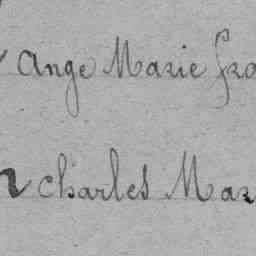 Ange Marie fra
Charles Mar